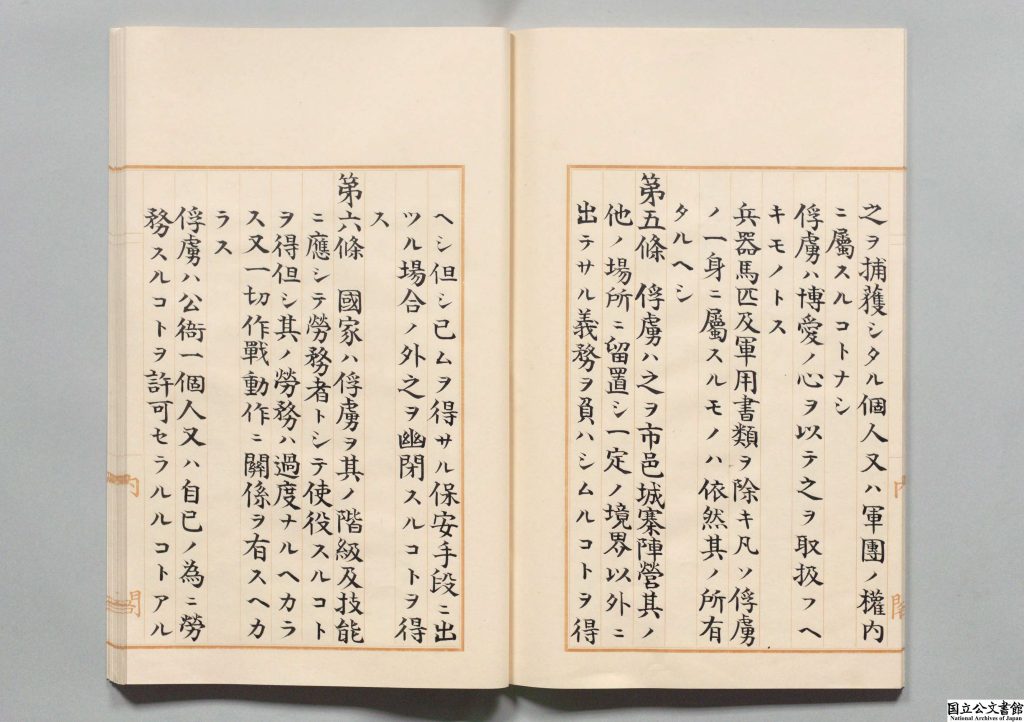 之ヲ捕獲シタル個人又ハ軍團ノ權内
ニ屬スルコトナシ
俘虜ハ博愛ノ心ヲ以テ之ヲ取扱フヘ
キモノトス
兵器馬匹及軍用書類ヲ除キ凡ソ俘虜
ノ一身ニ屬スルモノハ依然其ノ所有
タルヘシ
第五條　俘虜ハ之ヲ市邑城寨陣營其ノ
他ノ場所ニ留置シ一定ノ境界以外ニ
出テサル義務ヲ負ハシムルコトヲ得
ヘシ但シ已ムヲ得サル保安手段ニ出
ツル場合ノ外之ヲ幽閉スルコトヲ得
ス
第六條　國家ハ俘虜ヲ其ノ階級及技能
ニ應シテ勞務者トシテ使役スルコト
ヲ得但シ其ノ勞務ハ過度ナルヘカラ
ス又一切作戰動作ニ關係ヲ有スヘカ
ラス
俘虜ハ公衙一個人又ハ自已ノ為ニ勞
務スルコトヲ許可セラルルコトアル
内
閣
内
閣
国立公文書館
National Archives of Japan